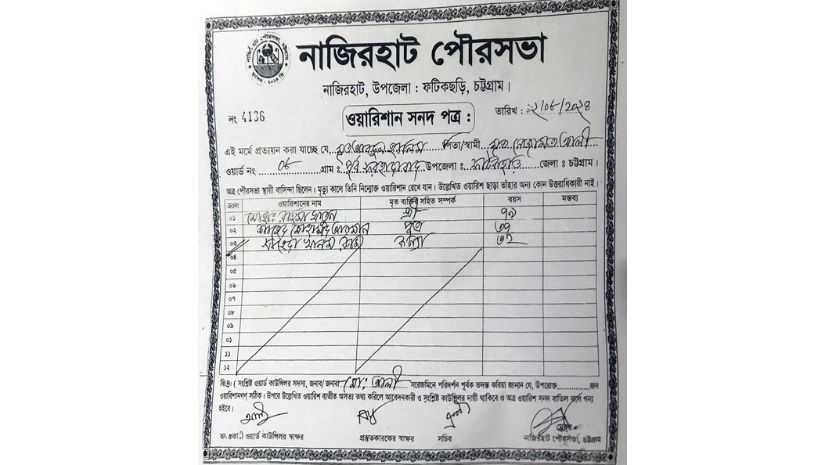 নাজিরহাট পৌরসভা
নাজিরহাট, উপজেলা : ফটিকছড়ি, চট্টগ্রাম।
নং 4136
ওয়ারিশান সনদ পত্র :
তারিখ :
এই মর্মে প্রত্যয়ন করা যাচ্ছে যে, পিতা/স্বামী
ওয়ার্ড নং ০৮ গ্রাম : পূর্ব ফরহাদাবাদ উপজেলা : ফটিকছড়ি জেলা : চট্টগ্রাম।
অত্র পৌরসভা স্থায়ী বাসিন্দা ছিলেন। মৃত্যু কালে তিনি নিম্নোক্ত ওয়ারিশান রেখে যান। উল্লেখিত ওয়ারিশ ছাড়া তাঁহার অন্য কোন উত্তরাধিকারী নাই।
ক্রঃনং ওয়ারিশানের নাম মৃত ব্যক্তির সহিত সম্পর্ক বয়স মন্তব্য
০১ স্ত্রী
০২ পুত্র
০৩ কন্যা ৩২
০৪
০৫
০৬
০৭
০৮
০৯
০১
১১
১২
বিঃদ্রঃ ( সংশ্লিষ্ট ওয়ার্ড কাউন্সিলর সদস্য, জনাব/ জনাবা মোঃ আলী সরেজমিনে পরিদর্শন পূর্বক তদন্ত করিয়া জানান যে, উপরোক্ত জন
ওয়ারিশানগণ সঠিক। উপরে উল্লেখিত ওয়ারিশ ব্যতীত অসত্য তথ্য করিলে আবেদনকারী ও সংশ্লিষ্ট কাউন্সিলর দায়ী থাকিবে ও অত্র ওয়ারিশ সনদ বাতিল বলে গন্য
হইবে।
ওয়ার্ড কাউন্সিলর স্বাক্ষর প্রস্তুতকারকের স্বাক্ষর সচিব নাজিরহাট পৌরসভা, চট্টগ্রাম